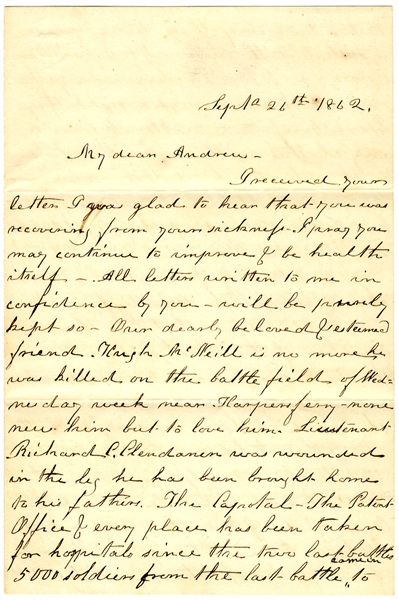 Septa 26th 1862.
My dear Andrew -
I received your
letter I was glad to hear that you was
recovering from your sickness - I pray you
may continue to improve & be health
itself - All letters written to me in
confidence by you - will be purely
kept so - Our dearly beloved & esteemed
friend. Hugh McNeill is no more he
was killed on the battle field of Wed-
neday week near Harpers ferry - none
new him but to love him. Lieutenant
Richard C. Clendanen was wounded
in the leg he has been brought home
to his fathers. The Capotal - The Patent
Office & every place has been taken
for hospitals since the two last battles
came in
5000 soldiers from the last battle " to